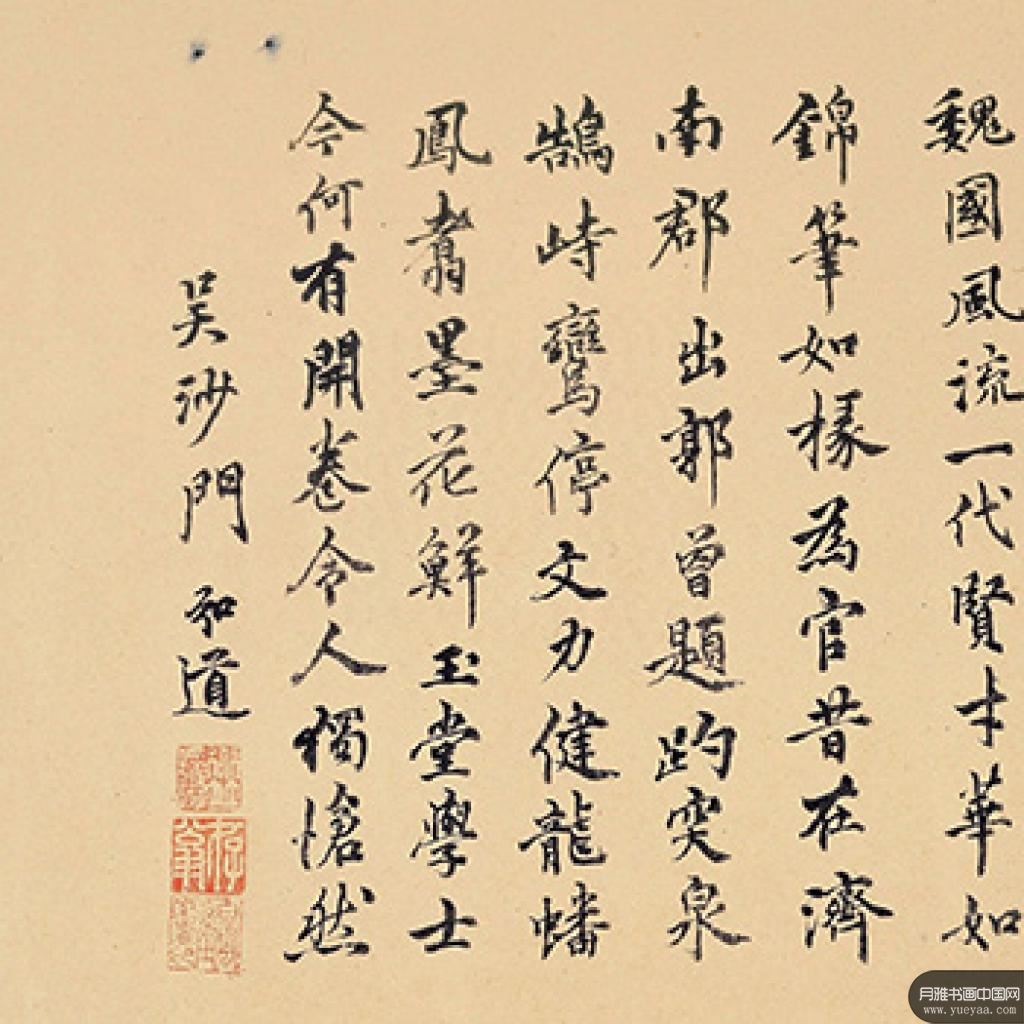 魏國風流一代賢才華如
錦筆如椽為官昔在濟
南郡出郭曾題趵突泉
鵠峙鸞停文力健龍蟠
鳳翥墨花鮮玉堂學士
今何有開卷令人獨愴然
吳沙門 知道
月雅书画中国网
www.yueyaa.com